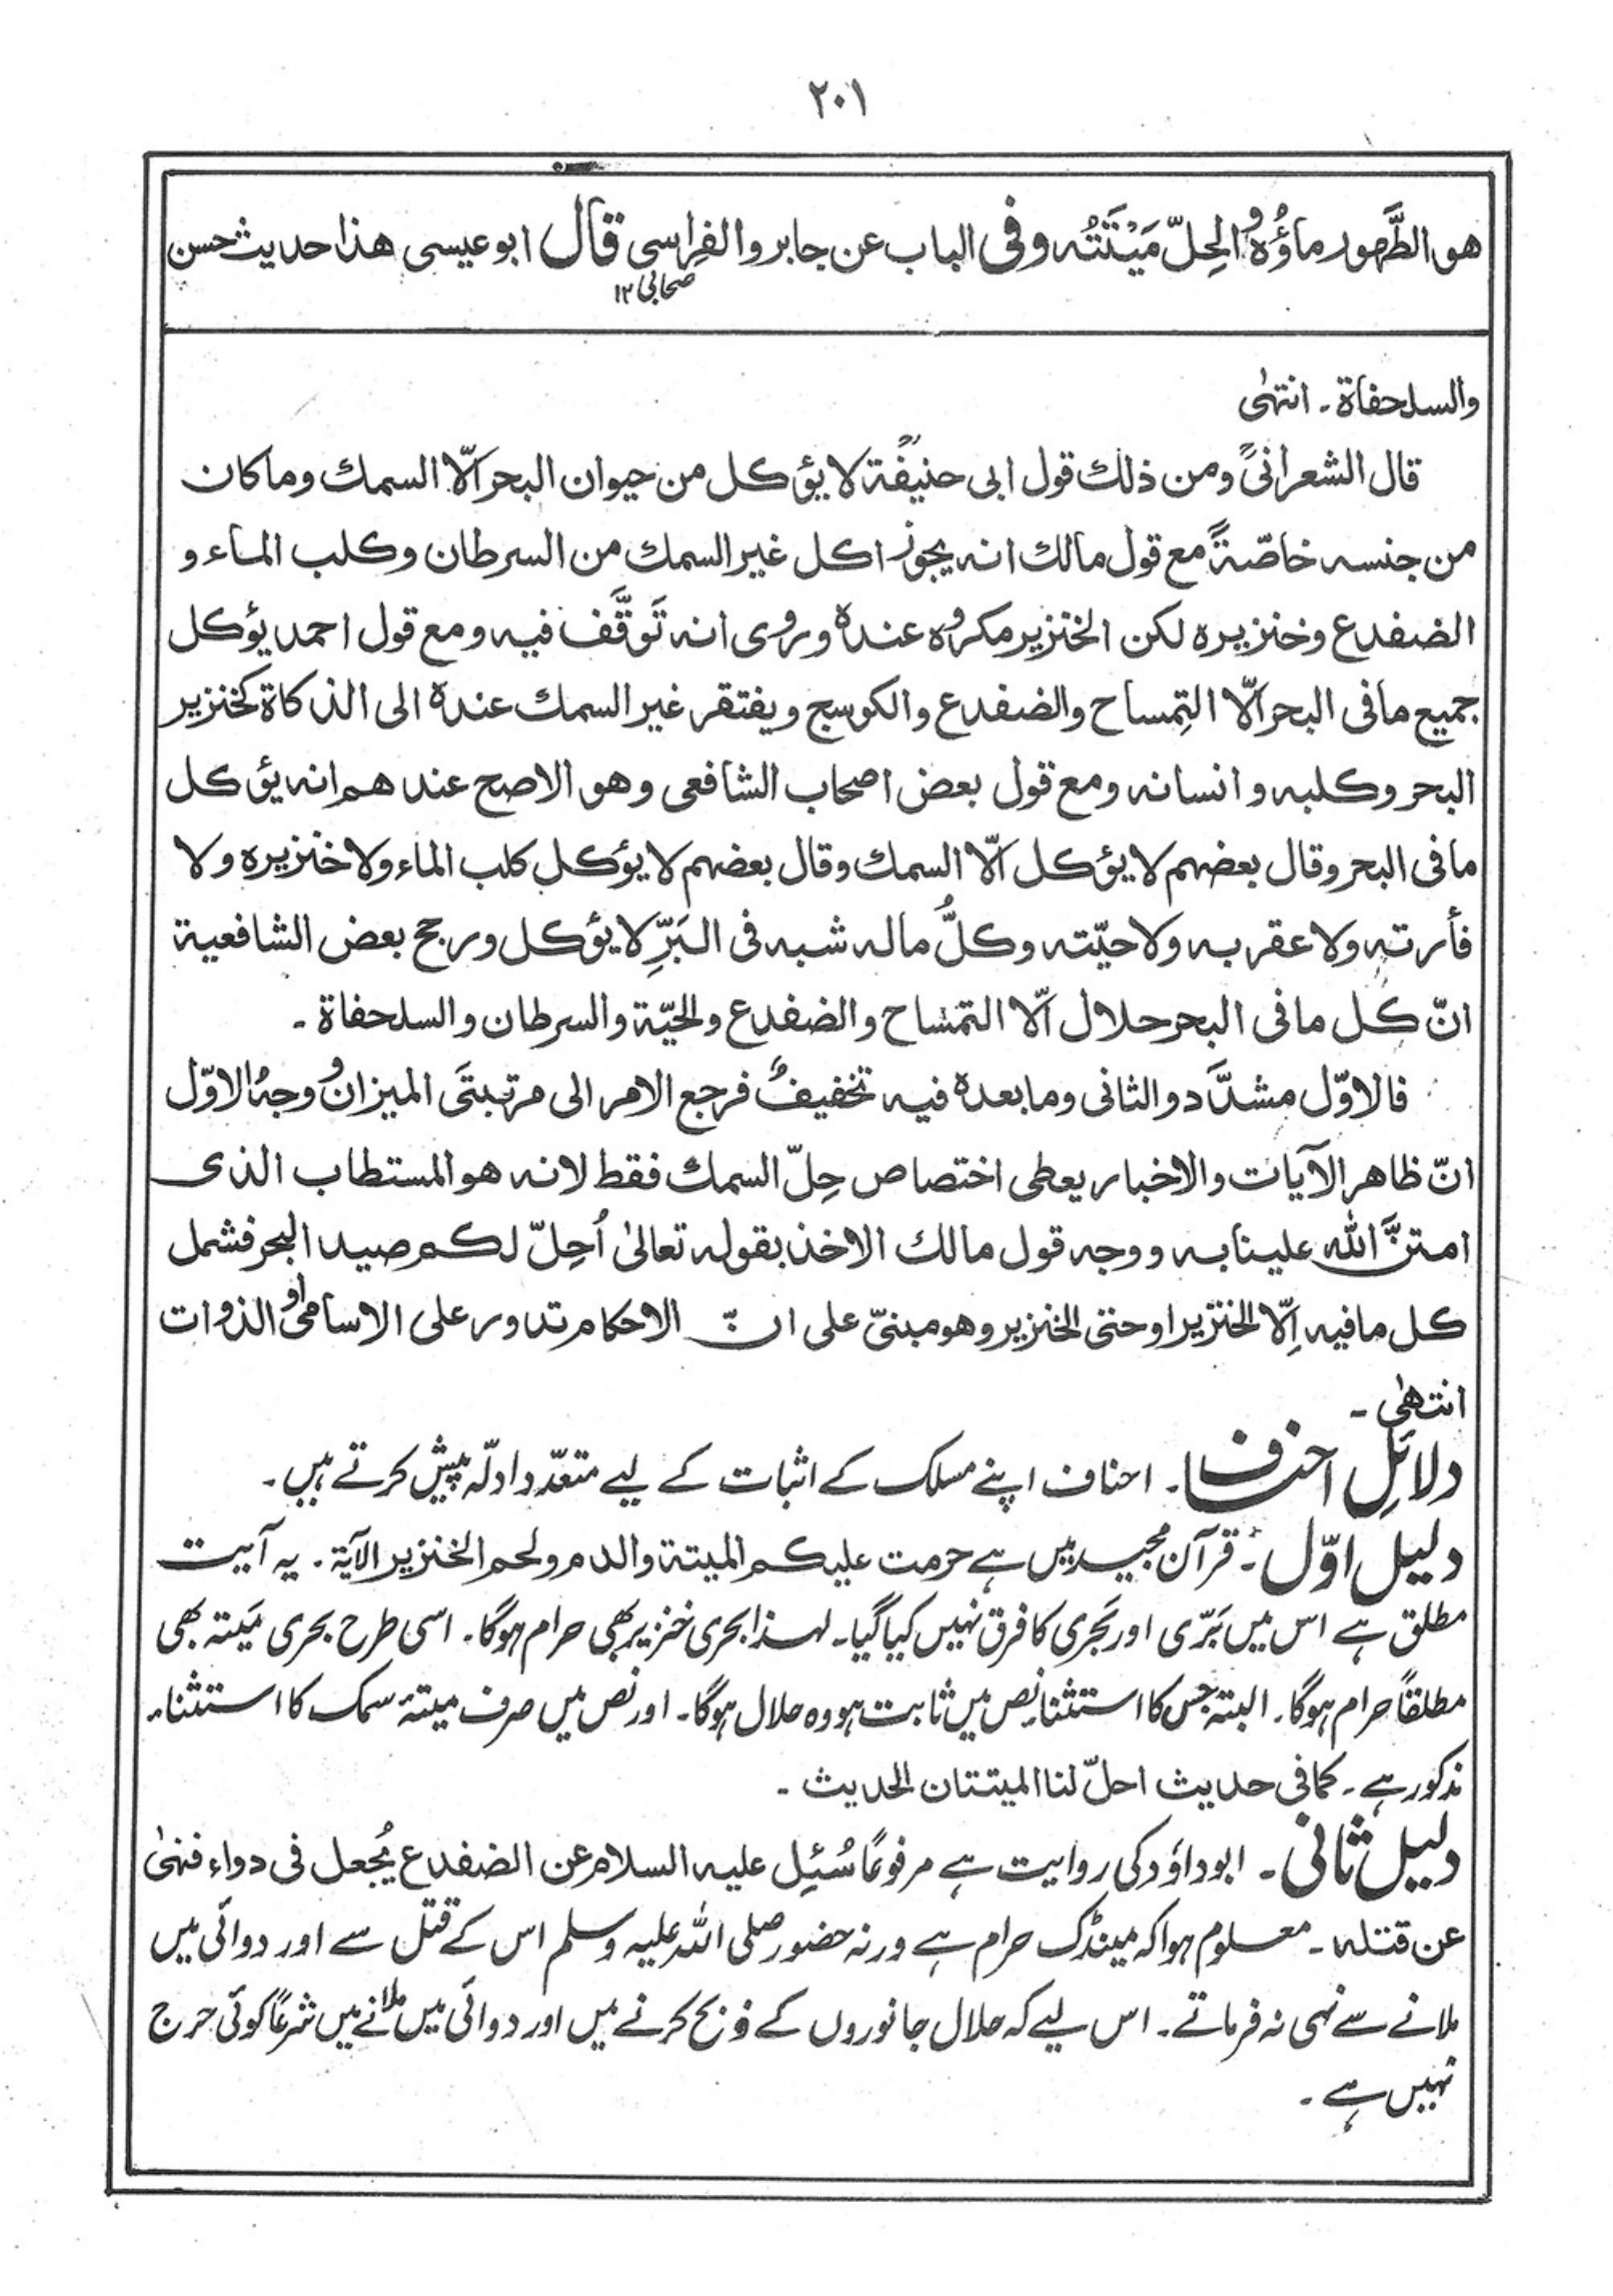 ٢٠١
هو الطَّهور ماؤُهُ و الحِلّ مَيْتَتُه وفى الباب عن جابر والفِراسى قال ابو عيسى هذا حديث حسن
صحابی ١٢
والسلحفاة ۔ انتهٰى
قال الشعرانىؒ ومن ذلك قول ابى حنيفةؒ لا يؤكل من حيوان البحر الّا السمك وما كان
من جنسه خاصّةً مع قول مالك انه يجوز اكل غير السمك من السرطان وكلب الماء و
الضفدع وخنزيره لكن الخنزير مكروه عنده وروى انه تَوقَّف فيه ومع قول احمد يؤكل
جميع ما فى البحر الّا التِمساح والضفدع والكوسج ويفتقر غير السمك عنده الى الذكاة كخنزير
البحر وكلبه وانسانه ومع قول بعض اصحاب الشافعى وهو الاصح عندهم انه يؤكل
ما فى البحر وقال بعضهم لا يؤكل الّا السمك وقال بعضهم لا يؤكل كلب الماء ولا خنزيره ولا
فأرته ولا عقربه ولا حيّته وكلُّ ما له شبه فى البَرِّ لا يؤكل ورجح بعض الشافعية
انّ كل ما فى البحر حلال الّا التمساح والضفدع والحيّة والسرطان والسلحفاة ۔
فالاوّل مشدَّد والثانى وما بعده فيه تخفيفٌ فرجع الامر الى مرتبتَى الميزان و وجهُ الاوّل
انّ ظاهر الآيات والاخبار يعطى اختصاص حِلّ السمك فقط لانه هو المستطاب الذى
امتنَّ الله علينا به ووجه قول مالك الاخذ بقوله تعالىٰ اُحِلّ لكم صيد البحر فشمل
كل ما فيه اِلّا الخنزير او حتى الخنزير وهو مبنىّ على انّ الاحكام تدور على الاسامى او الذوات
انتهٰى ۔
دلائلِ احناف ۔ احناف اپنے مسلک کے اثبات کے لیے متعدّد ادلّہ پیش کرتے ہیں ۔
دلیل اوّل ۔ قرآن مجید میں ہے حرمت عليكم الميتة والدم ولحم الخنزير الآية ۔ یہ آیت
مطلق ہے اس میں بَرّی اور بَحری کا فرق نہیں کیا گیا۔ لہذا بحری خنزیر بھی حرام ہوگا۔ اسی طرح بحری مَیتہ بھی
مطلقاً حرام ہوگا۔ البتہ جس کا استثناء نص میں ثابت ہو وہ حلال ہوگا۔ اور نص میں صرف میتۂ سمک کا استثناء
مذکور ہے۔ کما فی حدیث احلّ لنا الميتتان الحديث ۔
دلیل ثانی ۔ ابوداؤد کی روایت ہے مرفوعًا سُئِل عليه السلام عن الضفدع يُجعل فى دواء فنهىٰ
عن قتله ۔ معلوم ہوا کہ مینڈک حرام ہے ورنہ حضور صلی اللہ علیہ وسلم اس کے قتل سے اور دوائی میں
ملانے سے نہی نہ فرماتے۔ اس لیے کہ حلال جانوروں کے ذبح کرنے میں اور دوائی میں ملانے میں شرعًا کوئی حرج
نہیں ہے ۔